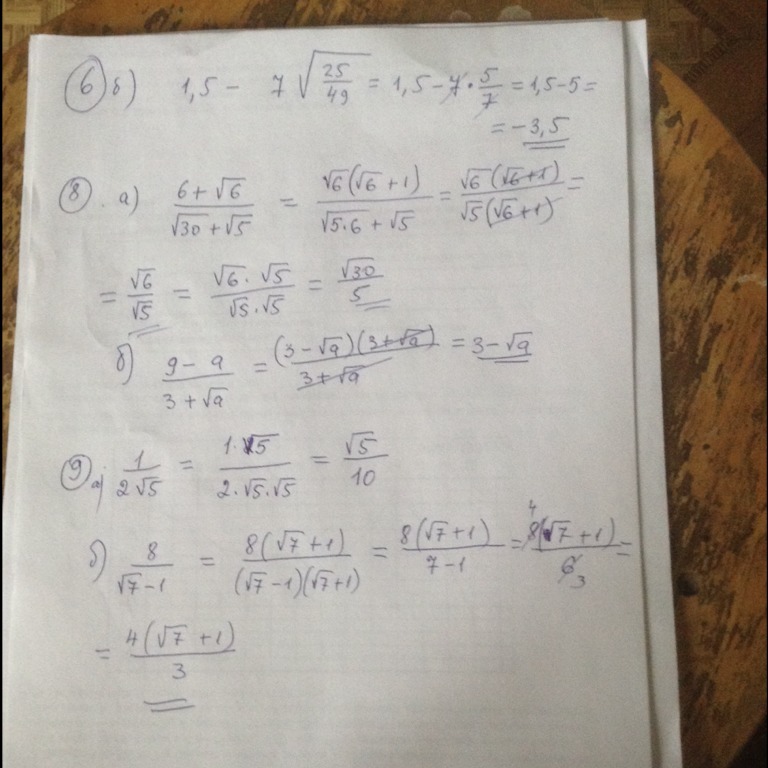 6 б) 1,5 - 7√(25/49) = 1,5 - 7·5/7 = 1,5 - 5 =
= -3,5
8. а) (6+√6)/(√30+√5) = √6(√6+1)/(√5·6+√5) = √6(√6+1)/√5(√6+1) =
= √6/√5 = √6·√5/√5·√5 = √30/5
б) (9-a)/(3+√a) = (3-√a)(3+√a)/(3+√a) = 3-√a
9 а) 1/2√5 = 1·√5/2·√5·√5 = √5/10
б) 8/(√7-1) = 8(√7+1)/(√7-1)(√7+1) = 8(√7+1)/(7-1) = 8 4 (√7+1)/6 3 =
= 4(√7+1)/3